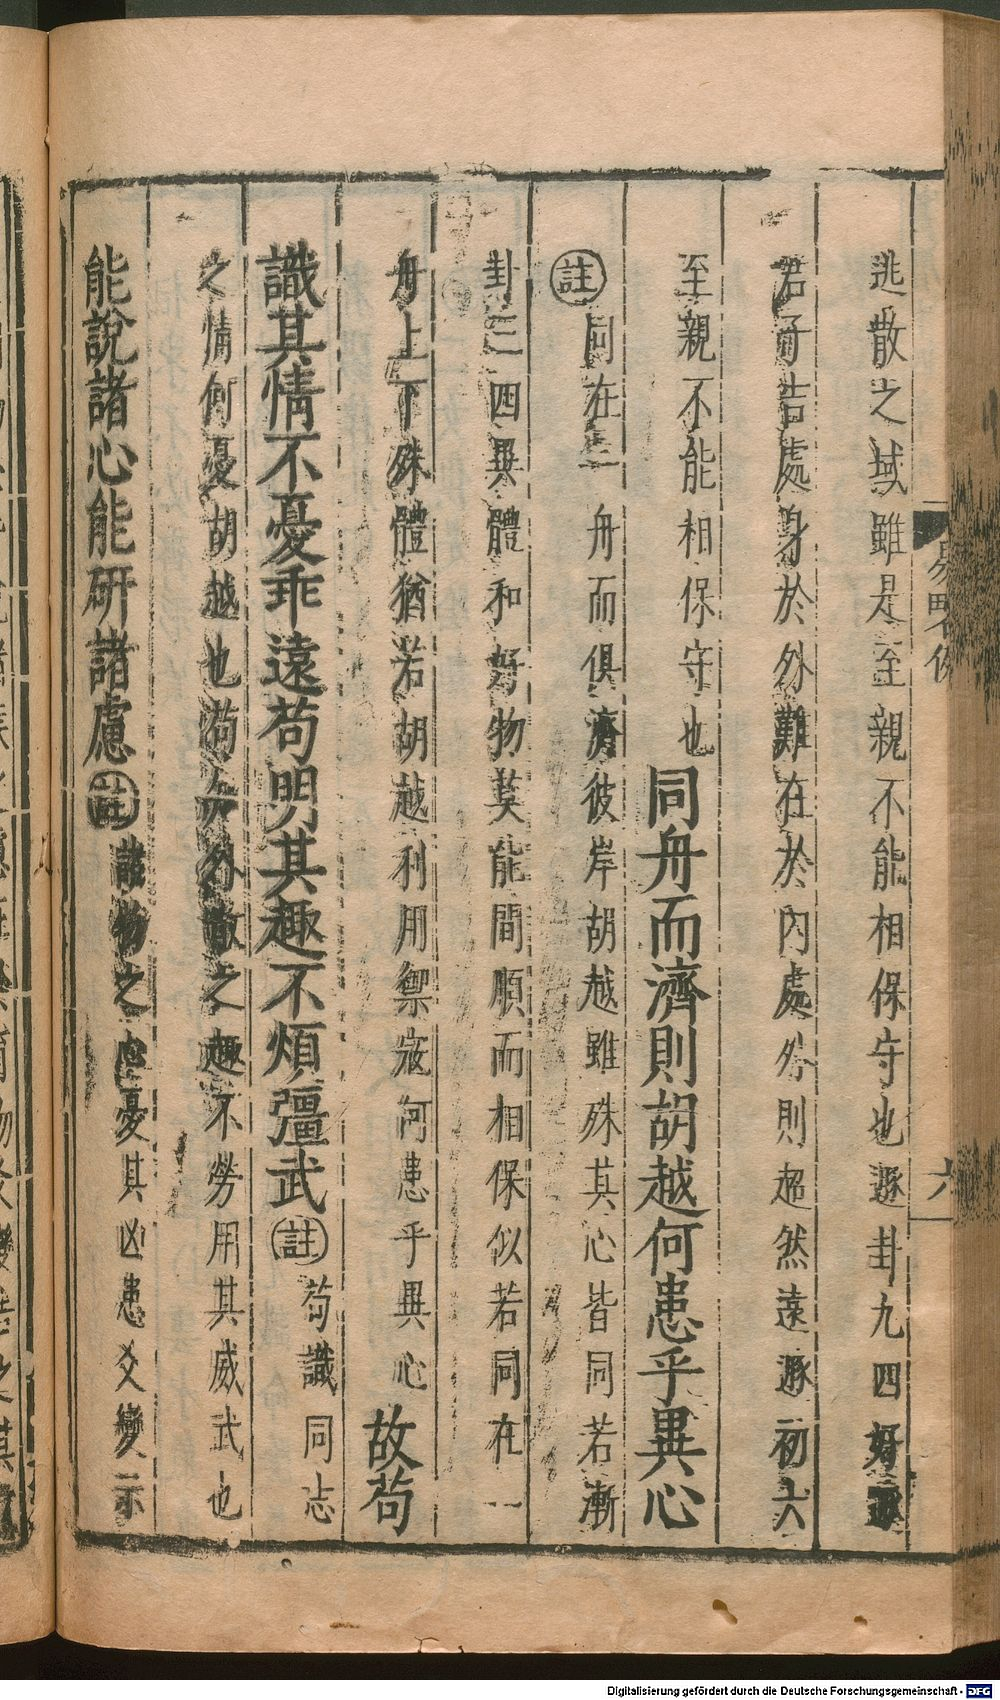 逃散之域雖是至親不能相保守也遯卦九四好遯
君子吉處身於外難在於内處外則超然遠遯初六
至親不能相保守也同舟而濟則胡越何患乎異心
註同在一舟而俱濟彼岸胡越雖殊其心皆同若漸
卦三四異體和好物莫能間順而相保似若同在一
舟上下殊體猶若胡越利用禦寇何患乎異心故苟
識其情不憂乖遠苟明其趣不煩彊武註苟識同志
之情何憂胡越也苟 外散之趣不勞用其威武也
能說諸心能研諸慮註諸物之 憂其凶患爻變示
易略例
六
Digitalisierung gefördert durch die Deutsche Forschungsgemeinschaft - DFG